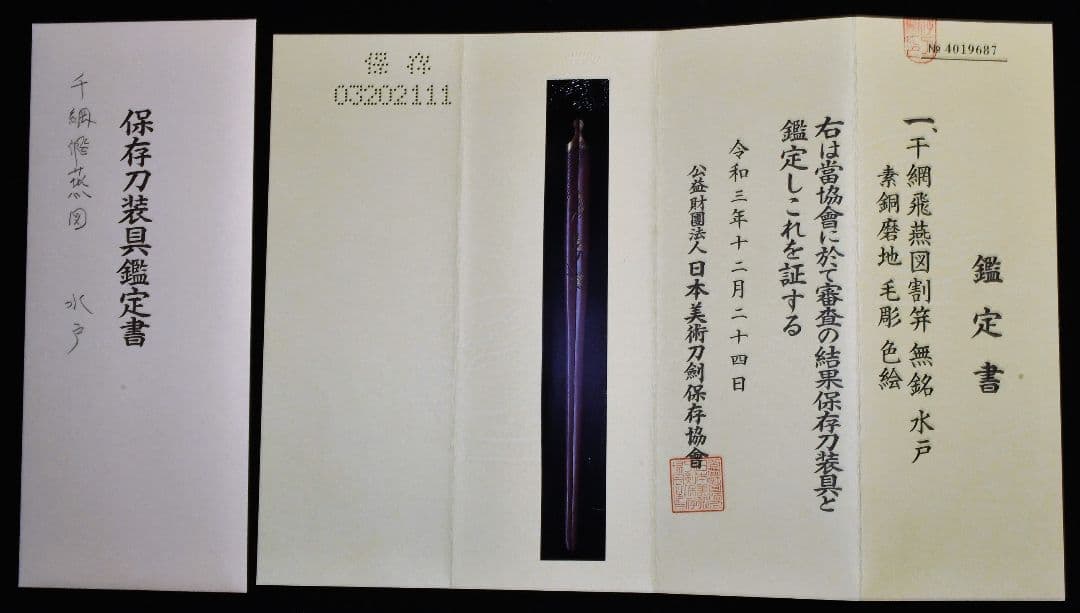 保存刀装具鑑定書
水戸
№ 4019687
鑑定書
一、干網飛燕図割笄 無銘 水戸
素銅磨地 毛彫 色絵
右は當協會に於て審査の結果保存刀装具と
鑑定しこれを証する
令和三年十二月二十四日
公益財團法人 日本美術刀劍保存協會
保存
03202111